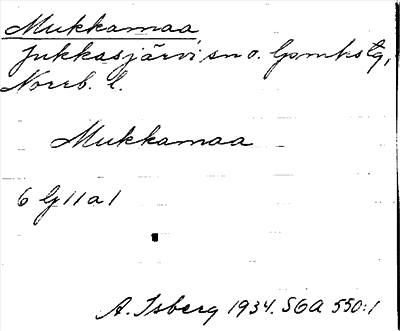 Mukkamaa
Jukkasjärvi sn o. lpmkstg,
Norrb. l.
Mukkamaa
6 lg 11 a 1
A. Isberg 1934. SGA 550:1